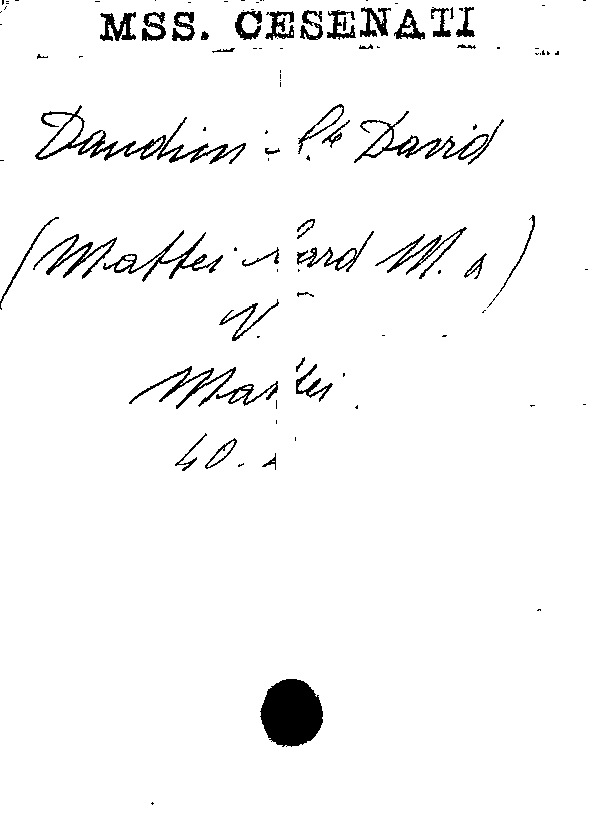 MSS. CESENATI
Dandini - C.te David
(Mattei Card M. a)
V.
Mattei
40.